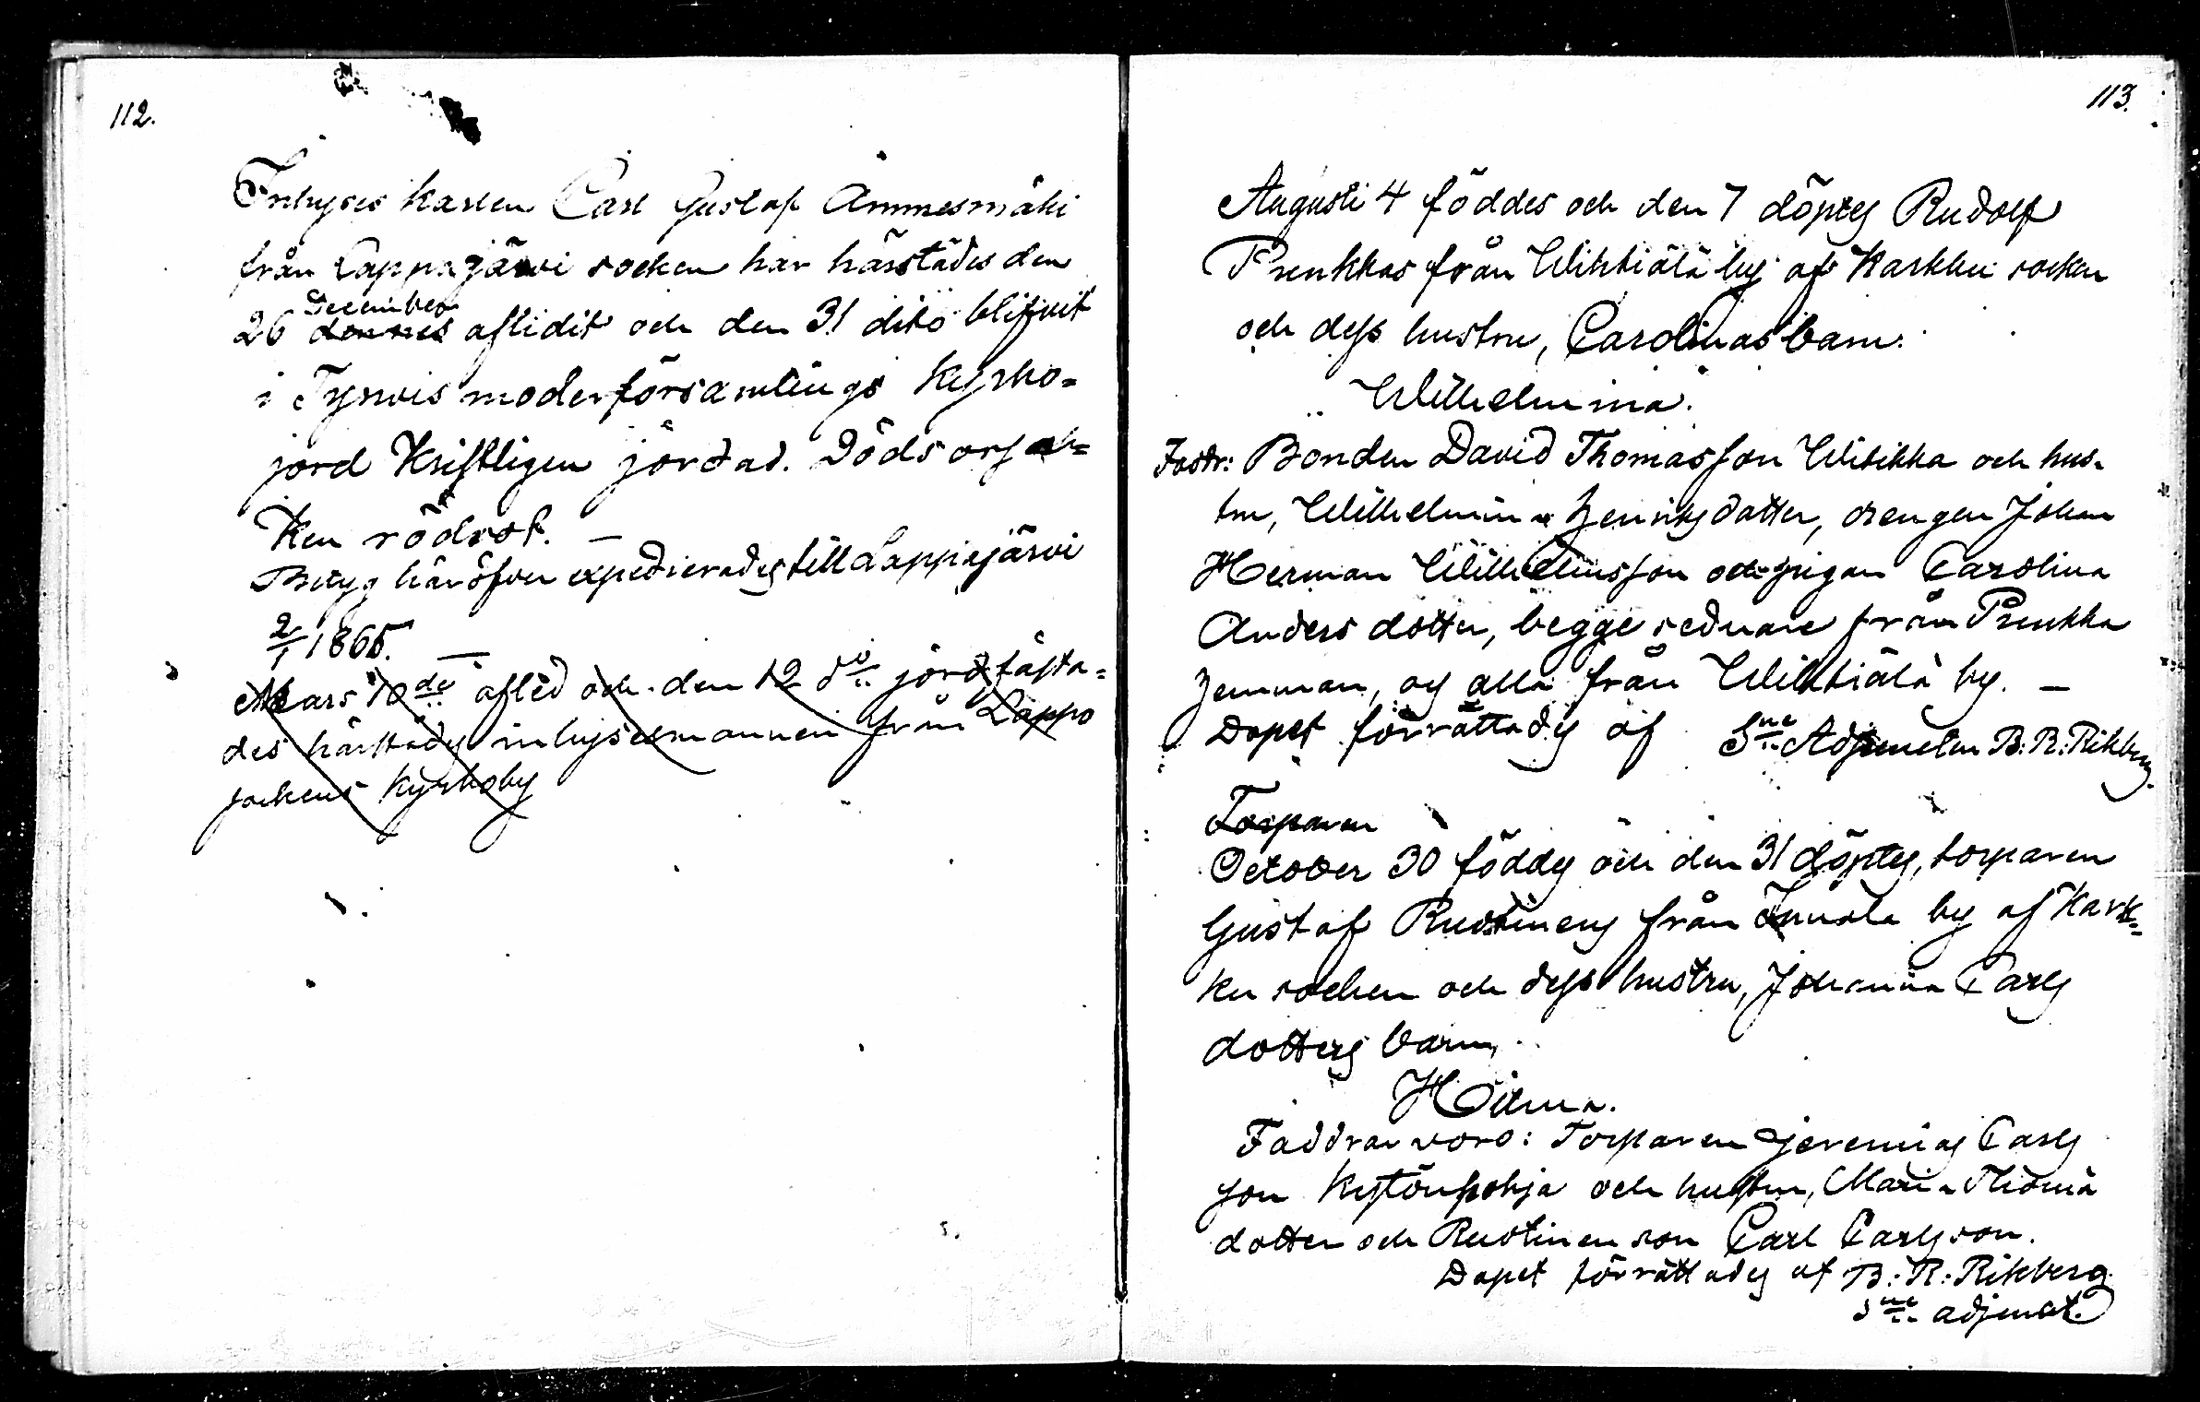 112.
Inhyses karlen Carl Gustaf Ammesmäki
från Lappajärvi socken har härstädes den
December
26 dennes aflidit och den 31 dito blifvit
i Tyrvis moderförsamlings kyrko=
jord Kristligen jordad. Dödsorsa=
ken rödsot. —
Betyg häröfver expedierades till Lappajärvi
2/1 1865. —
Mars 10de afled och den 12 do jordfästa=
des härstädes inhysesmannen från Lappo
sockens Kyrkoby
113.
Augusti 4 föddes och den 7 döptes Rudolf
Prenkkas från Wihtiälä by af Karkku socken
och dess hustru, Carolinas barn:
Wilhelmina.
Fadr: Bonden David Thomasson Wiikka och hus-
tru, Wilhelmina Henriksdotter, drengen Johan
Herman Wilhelmsson och pigan Carolina
Anders dotter, begge sednare från Prenkka
hemman, och alla från Wihtiälä by. —
Dopet förrättades af Sne Adjuncten B: R: Rikberg.
Torparen
October 30 föddes och den 31 döptes, torparen
Gustaf Rustinens från Innala by af Kark-
ku socken och dess hustru, Johanna Carls
dotters barn,
Hilma.
Faddrar voro: Torparen Jeremias Carls
son Kystönpohja och hustru, Maria Thoma
dotter och Rustinen son Carl Carlsson.
Dopet förrättades af B: R: Rikberg
sne adjunct.